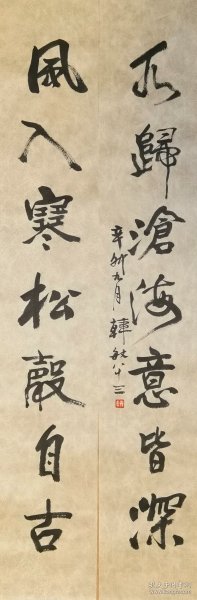 水歸滄海意皆深
辛卯九月韓敏八十三
風入寒松聲自古